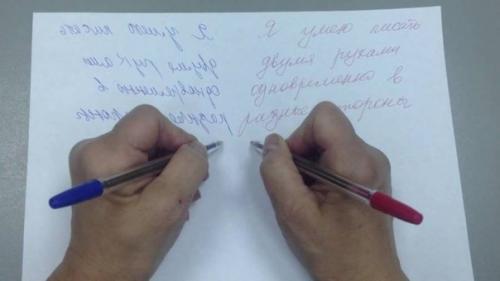 Я умею писать
двумя руками
одновременно в
разные стороны
Я умею писать
двумя руками
одновременно в
разные стороны